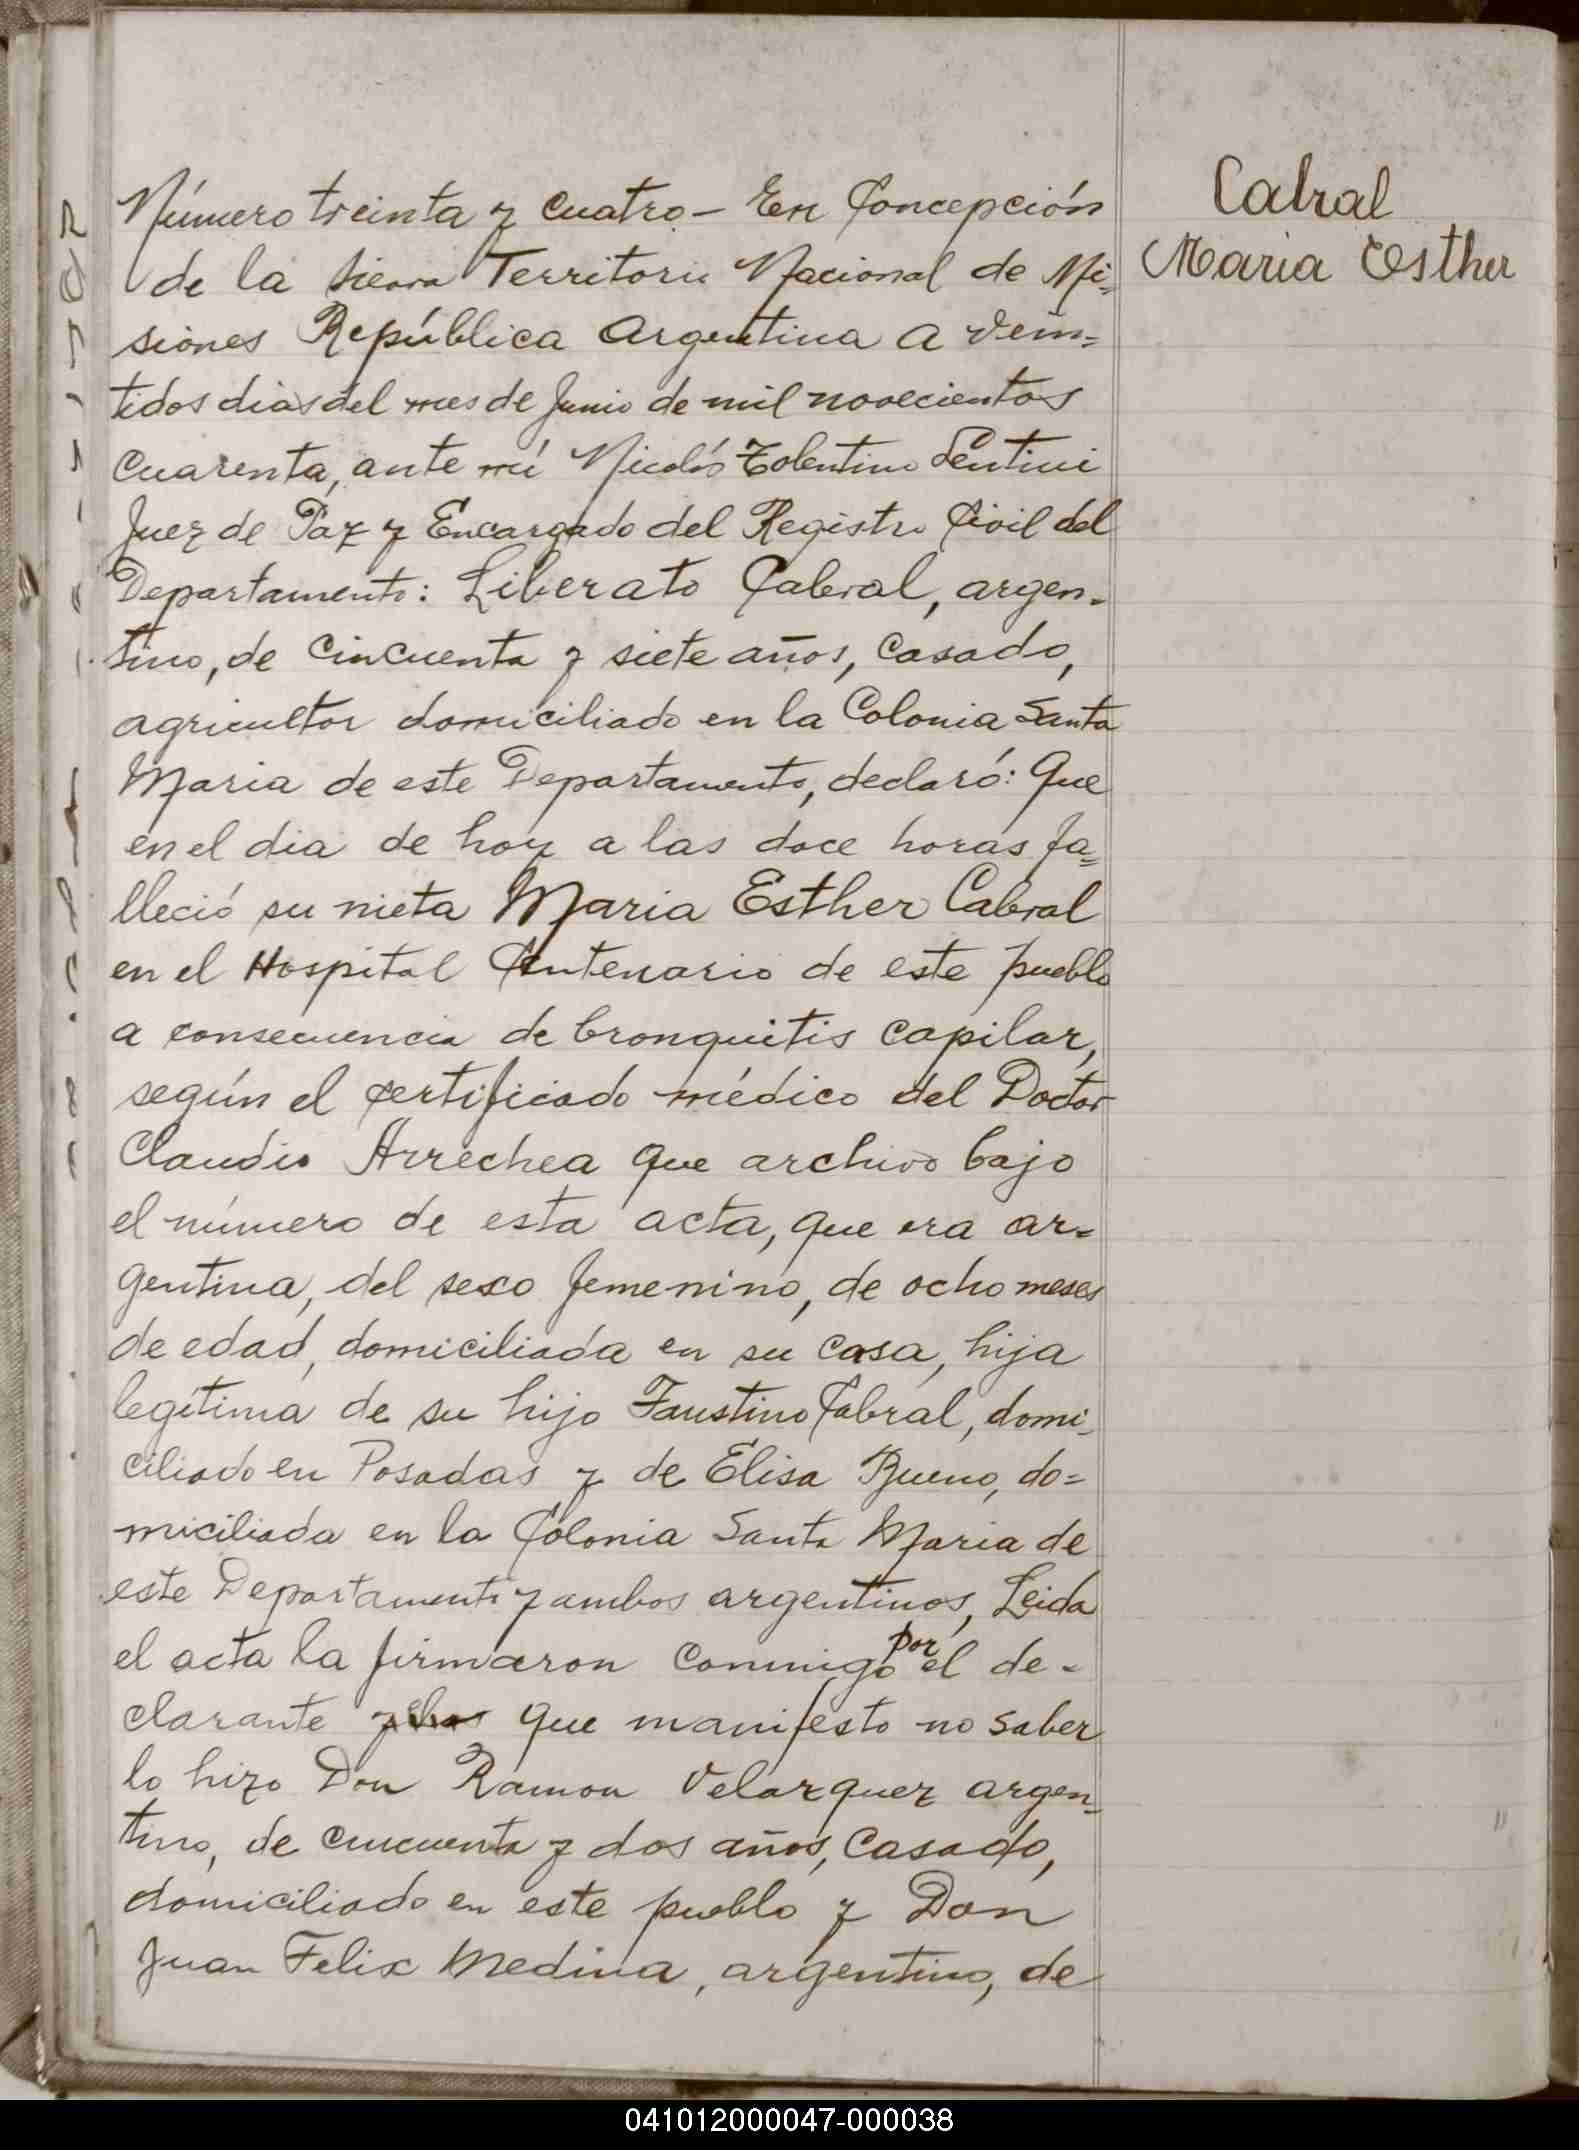 Cabral
Maria Esther
Número treinta y cuatro- En Concepción
de la Sierra Territorio Nacional de Mi=
siones República Argentina a vein=
tidos dias del mes de Junio de mil novecientos
cuarenta, ante mí Nicolás Tolentino Sentini
Juez de Paz y Encargado del Registro Civil del
Departamento: Liberato Cabral, argen-
tino, de cincuenta y siete años, casado,
agricultor domiciliado en la Colonia Santa
Maria de este Departamento, declaró: Que
en el dia de hoy a las doce horas fa=
lleció su nieta Maria Esther Cabral
en el Hospital Centenario de este pueblo
a consecuencia de bronquitis capilar,
según el certificado médico del Doctor
Claudio Arrechea que archivo bajo
el número de esta acta, que era ar=
gentina, del sexo femenino, de ocho meses
de edad, domiciliada en su casa, hija
legítima de su hijo Faustino Cabral, domi-
ciliado en Posadas y de Elisa Bueno, do=
miciliada en la Colonia Santa Maria de
este Departamento y ambos argentinos, Leida
el acta la firmaron conmigo por el de-
clarante que manifesto no saber
lo hizo Don Ramon Velazquez argen-
tino, de cincuenta y dos años, casado,
domiciliado en este pueblo y Don
Juan Felix Medina, argentino, de
041012000047-000038